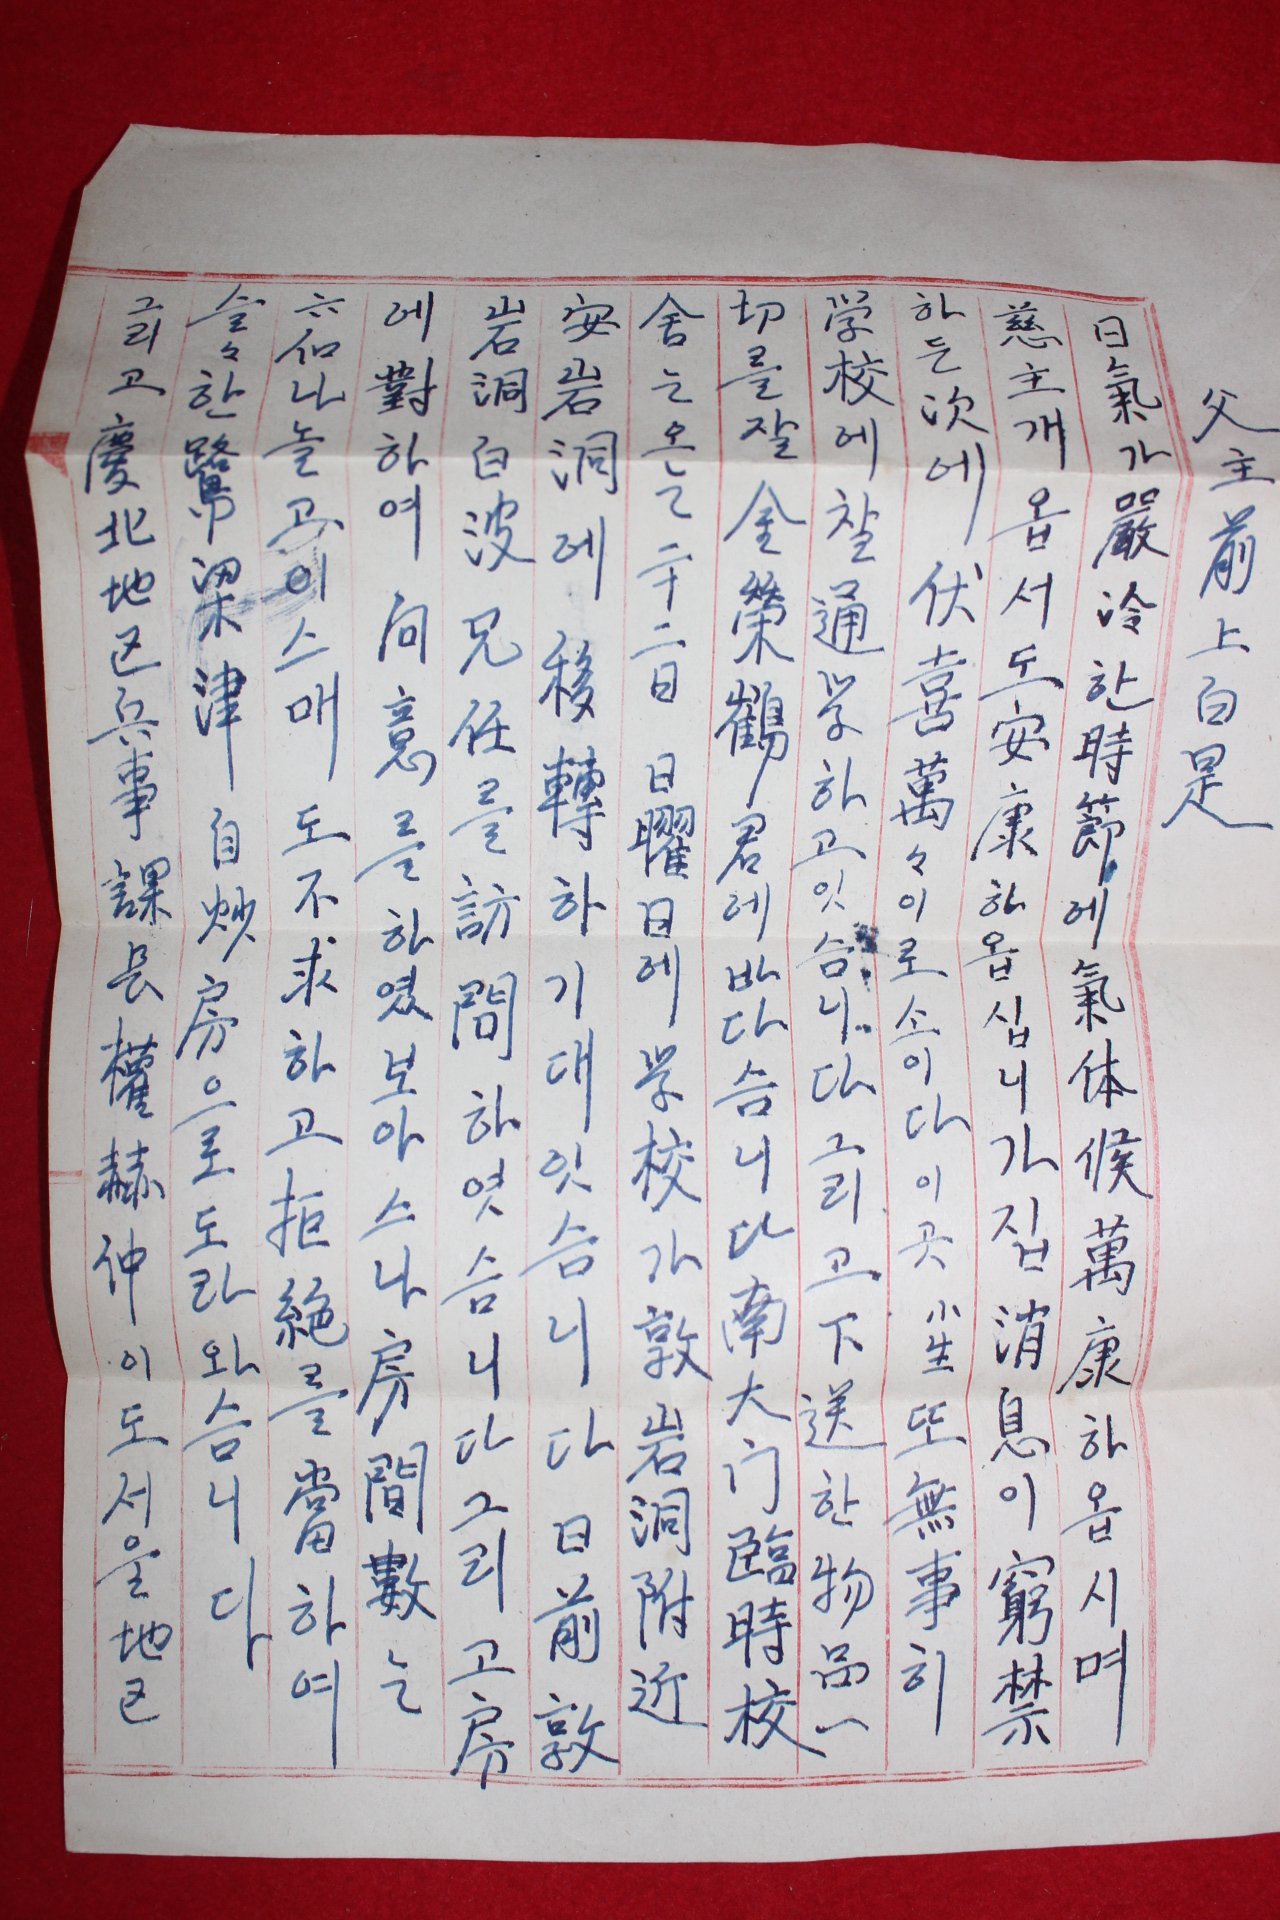 父主前上白是
日氣가嚴冷한時節에氣体候萬康하옵시며
慈主개옵서도安康하옵심니가집消息이窮禁
하든次에伏喜萬々이로소이다이곳小生또無事히
学校에잘通学하고잇슴니다그리고下送한物品一
切를잘金榮鶴君에바다슴니다南大门臨時校
舍는온는二十二日日曜日에学校가敦岩洞附近
安岩洞에移轉하기대잇슴니다日前敦
岩洞白波兄任를訪問하엿슴니다그리고房
에對하여向意를하였보아스나房間數는
六仙나놀고이스매도不求하고拒絶를當하여
슬々한鷺梁津自炒房으로도라와슴니다
그리고慶北地区兵事課長權赫仲이도서울地区